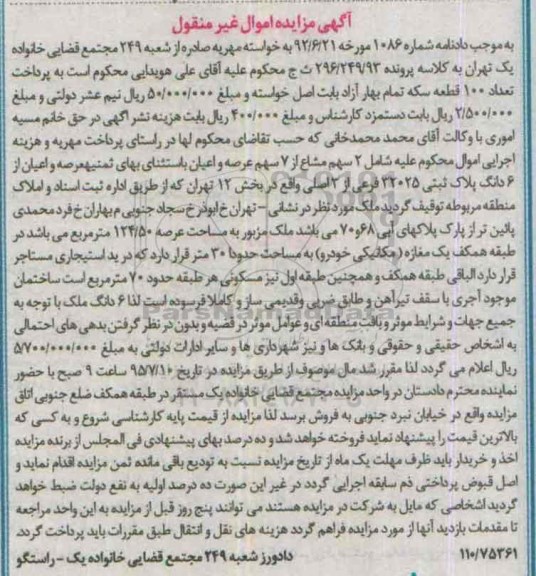 آگهی مزایده اموال غیر منقول
به موجب دادنامه شماره ۱۰۸۶ مورخه ۹۲/۶/۲۱ به خواسته مهریه صادره از شعبه ۲۴۹ مجتمع قضایی خانواده
یک تهران به کلاسه پرونده ۲۹۶/۲۴۹/۹۳ ث ج محکوم علیه آقای علی هویدایی محکوم است به پرداخت
تعداد ۱۰۰ قطعه سکه تمام بهار آزاد بابت اصل خواسته و مبلغ ۵۰/۰۰۰/۰۰۰ ریال نیم عشر دولتی و مبلغ
۲/۵۰۰/۰۰۰ ریال بابت دستمزد کارشناس و مبلغ ۴۰۰/۰۰۰ ریال بابت هزینه نشر اگهی در حق خانم مسیه
اموری با وکالت آقای محمد محمدخانی که حسب تقاضای محکوم لها در راستای پرداخت مهریه و هزینه
اجرایی اموال محکوم علیه شامل ۲ سهم مشاع از ۷ سهم عرصه و اعیان باستثنای بهای ثمنیه عرصه و اعیان از
۶ دانگ پلاک ثبتی ۲۳۰۲۵ فرعی از ۲ اصلی واقع در بخش ۱۲ تهران که از طریق اداره ثبت اسناد و املاک
منطقه مربوطه توقیف گردید ملک مورد نظر در نشانی - تهران خ ابوذر خ سجاد جنوبی م بهاران خ فرد محمدی
پائین تر از پارک پلاکهای آبی ۶۸ و ۷۰ می باشد ملک مزبور به مساحت عرصه ۱۲۴/۵۰ مترمربع می باشد در
طبقه همکف یک مغازه (مکانیکی خودرو) به مساحت حدودا ۳۰ متر قرار دارد که در ید استیجاری مستاجر
قرار دارد الباقی طبقه همکف و همچنین طبقه اول نیز مسکونی هر طبقه حدود ۷۰ مترمربع است ساختمان
موجود آجری با سقف تیرآهن و طاق ضربی وقدیمی ساز و کاملا فرسوده است لذا ۶ دانگ ملک با توجه به
جمیع جهات و شرایط موثر و بافت منطقه ای و عوامل موثر در قضیه و بدون در نظر گرفتن بدهی های احتمالی
به اشخاص حقیقی و حقوقی و بانک ها و نیز شهرداری ها و سایر ادارات دولتی به مبلغ ۵/۷۰۰/۰۰۰/۰۰۰
ریال اعلام می گردد لذا مقرر شد مال موصوف از طریق مزایده در تاریخ ۹۵/۷/۱۰ ساعت ۹ صبح با حضور
نماینده محترم دادستان در واحد مزایده مجتمع قضایی خانواده یک مستقر در طبقه همکف ضلع جنوبی اتاق
مزایده واقع در خیابان نبرد جنوبی به فروش برسد لذا مزایده از قیمت پایه کارشناسی شروع و به کسی که
بالاترین قیمت را پیشنهاد نماید فروخته خواهد شد و ده درصد بهای پیشنهادی فی المجلس از برنده مزایده
اخذ و خریدار باید ظرف مهلت یک ماه از تاریخ مزایده نسبت به تودیع باقی مانده ثمن مزایده اقدام نماید و
اصل قبوض پرداختی ضم سابقه اجرایی گردد در غیر این صورت ده درصد اولیه به نفع دولت ضبط خواهد
گردید اشخاصی که مایل به شرکت در مزایده هستند می توانند پنج روز قبل از مزایده به این واحد مراجعه
تا مقدمات بازدید آنها از مورد مزایده فراهم گردد هزینه های نقل و انتقال طبق مقررات باید پرداخت گردد.
۱۱۰/۷۵۳۶۱ دادورز شعبه ۲۴۹ مجتمع قضایی خانواده یک - راستگو
ParsNamadData